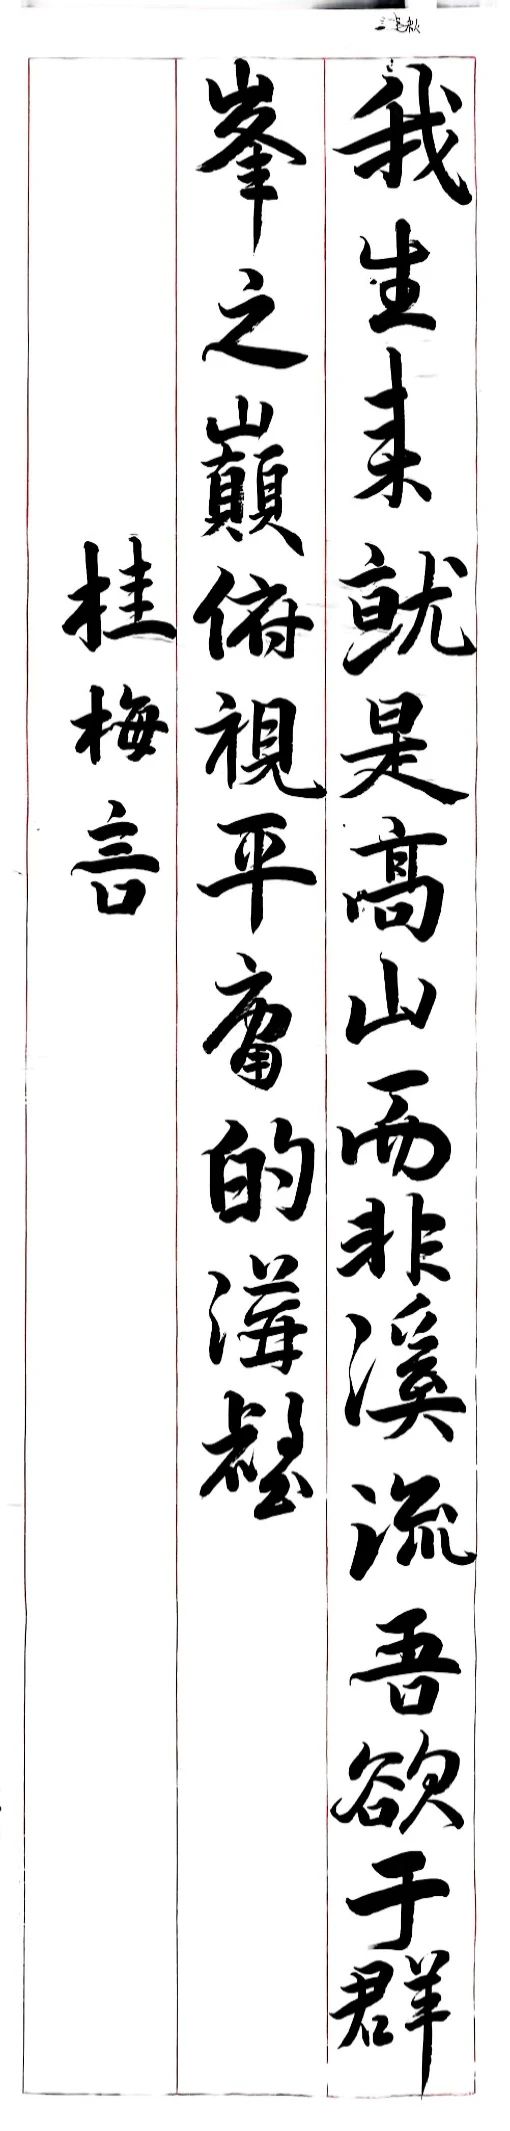 我生来就是高山而非溪流吾欲于群
峯之巔俯視平庸的溝壑
桂梅言